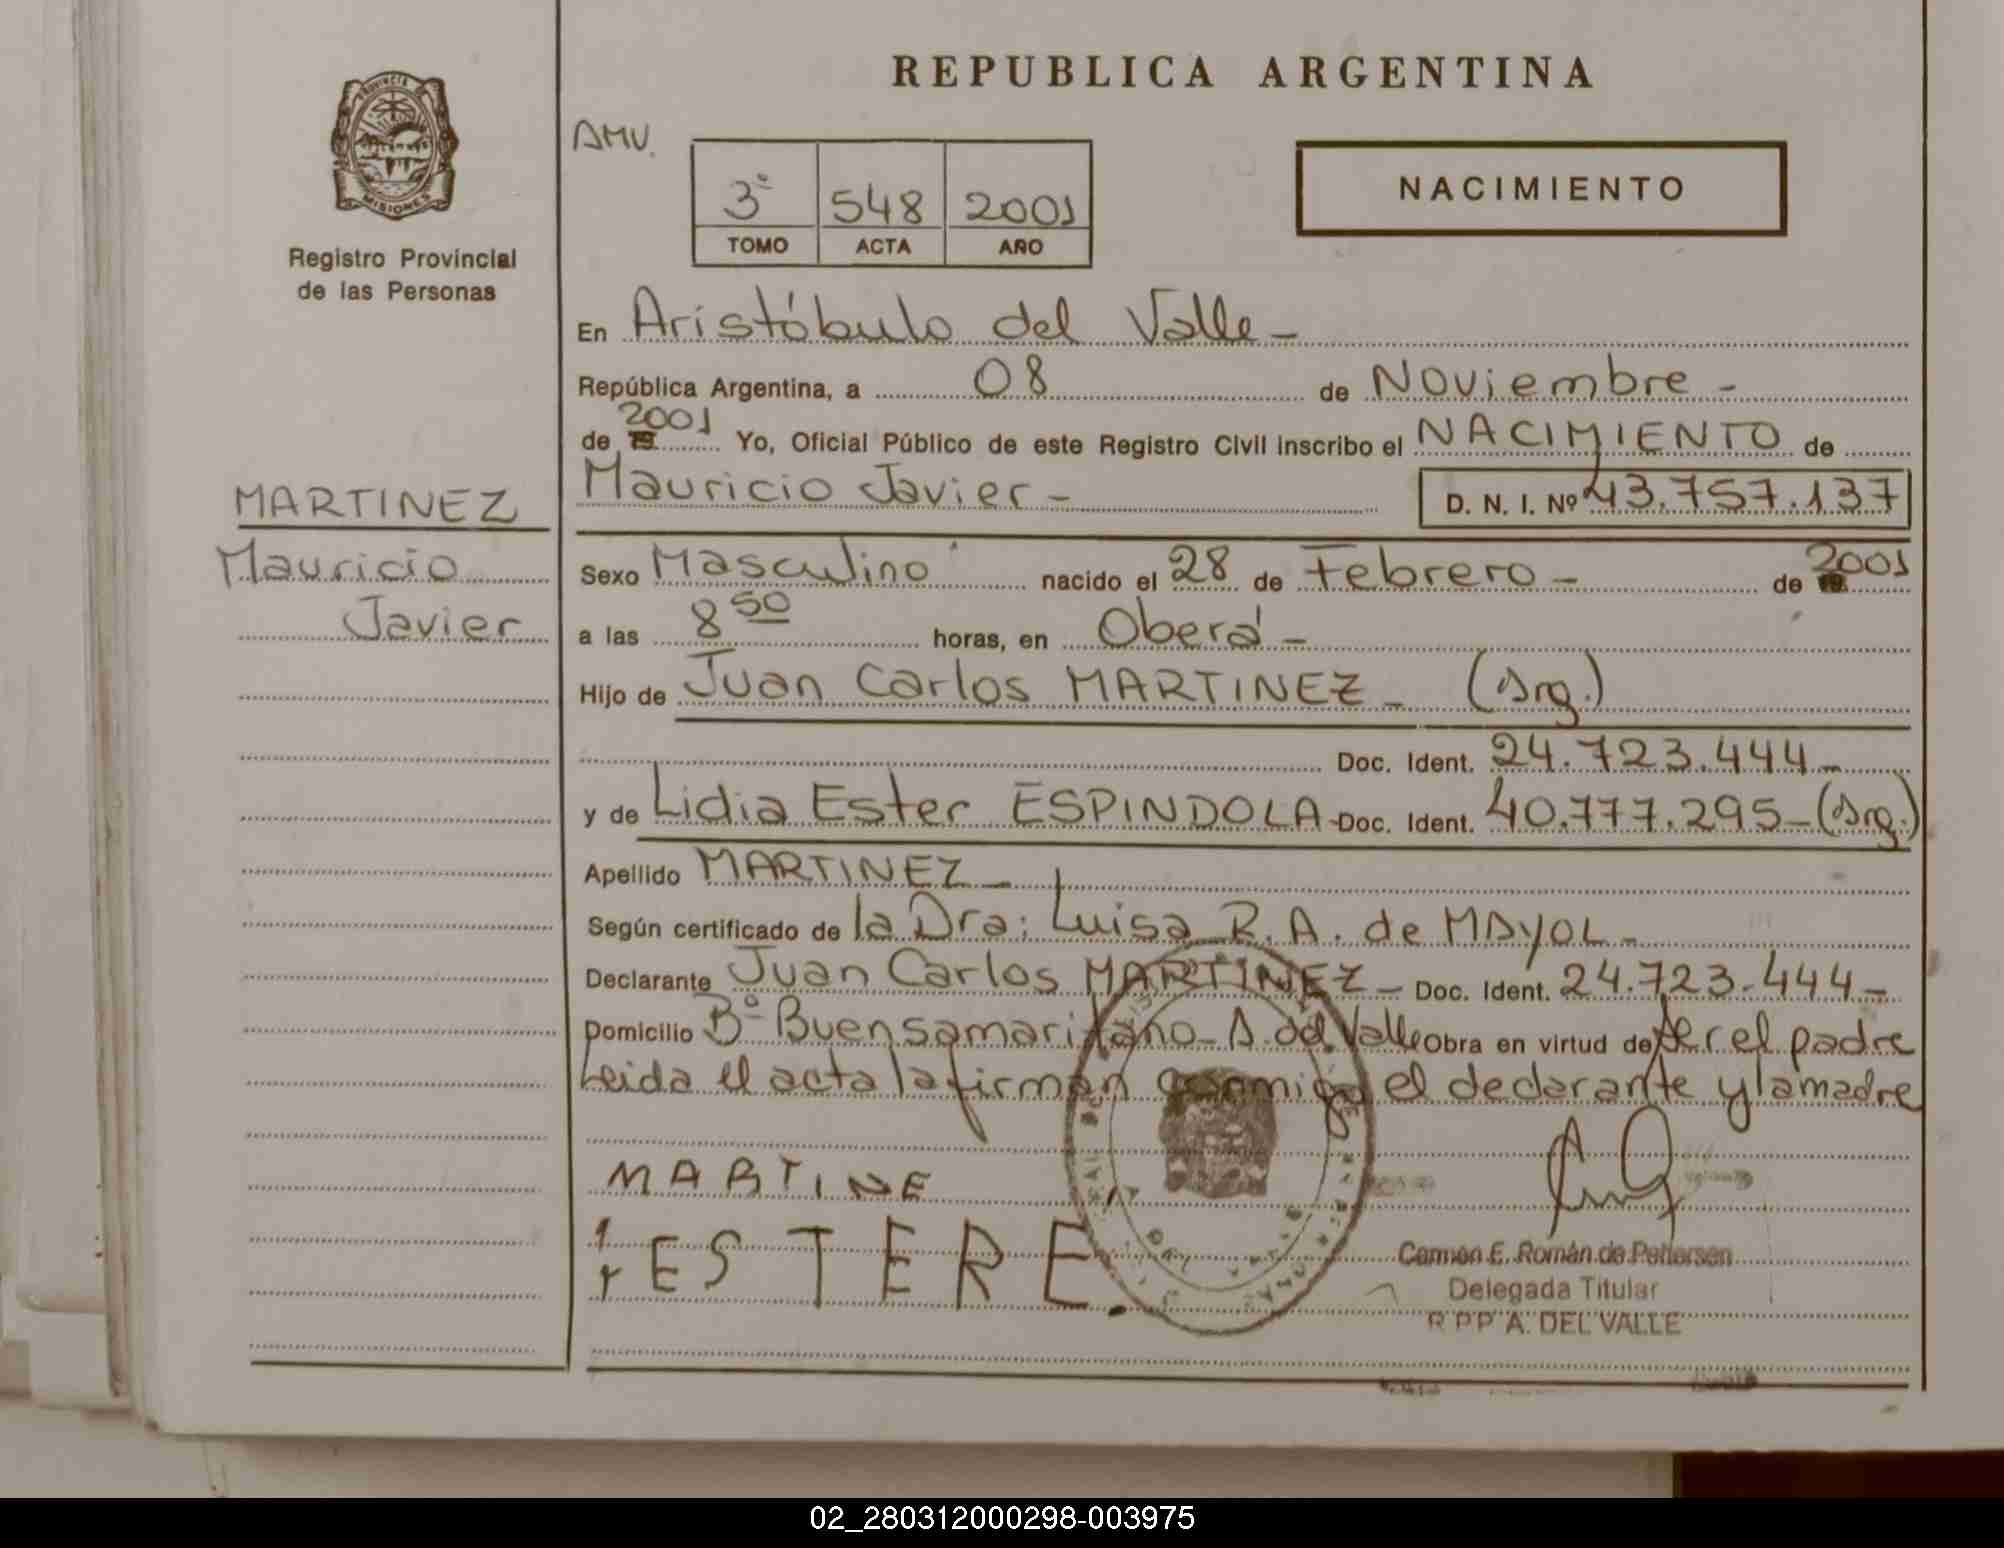 REPUBLICA ARGENTINA
PROVINCIA DE
MISIONES
Registro Provincial
de las Personas
AMV.
3º 548 2001
TOMO ACTA AÑO
NACIMIENTO
En Aristóbulo del Valle -
República Argentina, a 08 de Noviembre -
de 2001 Yo, Oficial Público de este Registro Civil inscribo el NACIMIENTO de
Mauricio Javier - D. N. I. Nº 43.757.137
MARTINEZ
Mauricio
Javier
Sexo Masculino nacido el 28 de Febrero - de 2001
a las 8 50 horas, en Oberá -
Hijo de Juan Carlos MARTINEZ - (Arg.)
Doc. Ident. 24.723.444 -
y de Lidia Ester ESPINDOLA - Doc. Ident. 40.777.295 - (Arg.)
Apellido MARTINEZ -
Según certificado de la Dra: Luisa R. A. de MAYOL -
Declarante Juan Carlos MARTINEZ - Doc. Ident. 24.723.444 -
Domicilio Bº Buen samaritano - A. del Valle Obra en virtud de ser el padre
Leida el acta la firman conmigo el declarante y la madre
MARTINE
ESTERE.
Carmen E. Román de Pettersen
Delegada Titular
R.P.P. A. DEL VALLE
02_280312000298-003975